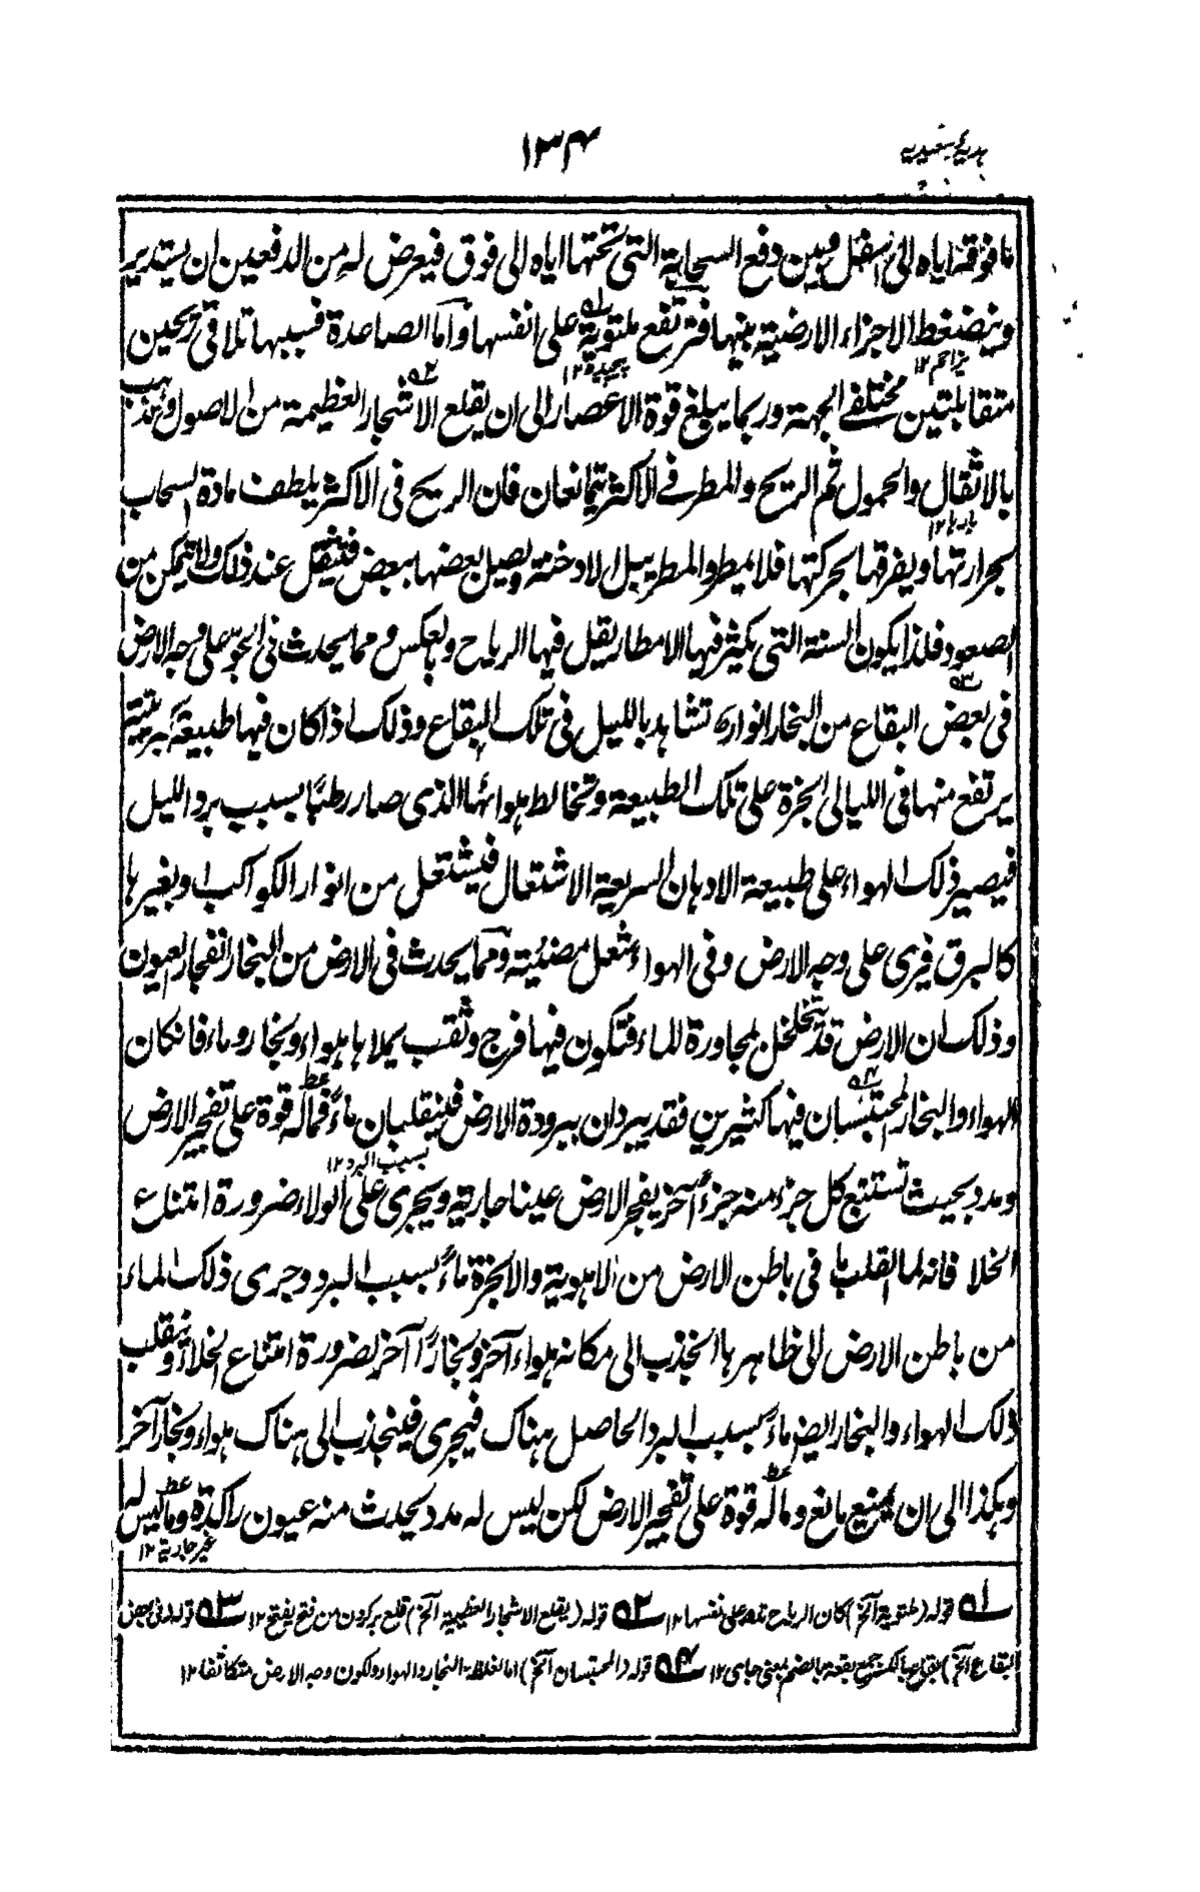 هدیۂ سعیدیه
۱۳۴
ما فوقه ایاه الی اسفل وبین دفع السحابة التی تحتها ایاه الی فوق فیعرض له من الدفعین ان یستدیر
وینضغط الاجزاء الارضیة بینها فترتفع ملتویة علی انفسها واما الصاعدة فسببها تلاقی ریحین
متقابلتین مختلفے الجهة وربما یبلغ قوة الاعصار الی ان یقلع الاشجار العظیمة من الاصول ویذهب
بالاثقال والحمول ثم الریح والمطر فے الاکثر یتمانعان فان الریح فی الاکثر یلطف مادة السحاب
بحرارتها ویفرقها بحرکتها فلا یمطر والمطر یبل الادخنة ویصل بعضها ببعض فیثقل عند ذلک ولا یتمکن من
الصعود فلذا یکون السنة التی یکثر فیها الامطار یقل فیها الریاح وبالعکس ومما یحدث فی الجو علی وجه الارض
فی بعض البقاع من البخار انواره تشاهد باللیل فی تلک البقاع وذلک اذا کان فیها طبیعة کبریتیة
یرتفع منها فی اللیالی ابخرة علی تلک الطبیعة وتخالط هوائها الذی صار رطبًا بسبب برد اللیل
فیصیر ذلک الهواء علی طبیعة الادهان السریعة الاشتعال فیشتعل من انوار الکواکب او بغیرها
کالبرق فیری علی وجه الارض وفی الهواء شعل مضیئة ومما یحدث فی الارض من البخار انفجار العیون
وذلک ان الارض قد یتخلخل لمجاورة للماء فتکون فیها فرج وثقب یملاها هواء وبخار وماء فانکان
الهواء والبخار المحتبسان فیها کثیرین فقد یبردان ببرودة الارض فینقلبان ماءً فما له قوة علی تفجیر الارض
بسبب البرد ۱۲
ومدد بحیث تستتبع کل جزء منه جزءً آخر یفجر الارض عینا جاریة ویجری علی الولاء ضرورة امتناع
الخلا فانه لما انقلب ما فی باطن الارض من الاهویة والابخرة ماءً بسبب البرد وجری ذلک الماء
من باطن الارض الی ظاهرها انجذب الی مکانه هواء آخر وبخارًا آخر لضرورة امتناع الخلاء وینقلب
ذلک الهواء والبخار ایضا ماءً بسبب البرد الحاصل هناک فیجری فینجذب الی هناک هواء وبخار آخر
وهکذا الی ان یمنع مانع وما له قوة علی تفجیر الارض لکن لیس له مدد یحدث منه عیون راکدة وما لیس له
غیر جاریة ۱۲
۱ قوله (ملتویة آلخ) کان الریاح علی نفسها ۱۲ ۲ قوله (یقلع الاشجار العظیمة آلخ) قلع برکندن من فتح یفتح ۱۲ ۳ قوله (فی بعض
البقاع آلخ) بقاع بالکسر جمع بقعة بالضم بمعنی جای ۱۲ ۴ قوله (المحتبسان آلخ) اما لغلظة البخار والهواء ولکون وجه الارض متکاثفا ۱۲